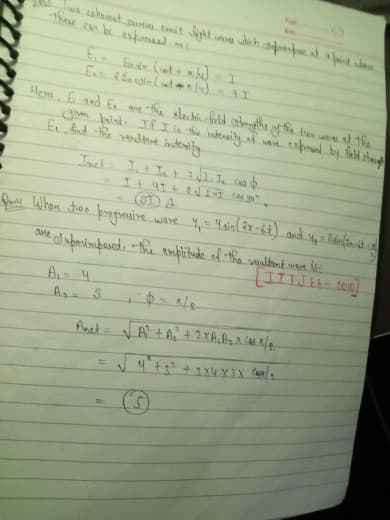 Two coherent sources emit light waves which superimpose at a point where
these can be expressed as:
E₁ = E₀ sin (ωt + π/4) = I
E₂ = 2E₀ sin (ωt - π/4) = 4I
Here, E₁ and E₂ are the electric field strengths of the two waves at the
given point. If I is the intensity of wave expressed by field strength
E₁, find the resultant intensity
Inet = I₁ + I₂ + 2√I₁I₂ cos φ
= I + 4I + 2√I4I cos 90°
= 5I
When two progressive wave y₁ = 4sin(2x-6t) and y₂ = 3sin(2x-6t-π/2)
are superimposed. The amplitude of the resultant wave is:
[IITJEE - 2010]
A₁ = 4
A₂ = 3 , φ = π/2
Anet = √A₁² + A₂² + 2×A₁A₂ × cos π/2
= √4² + 3² + 2×4×3× cos π/2
= 5